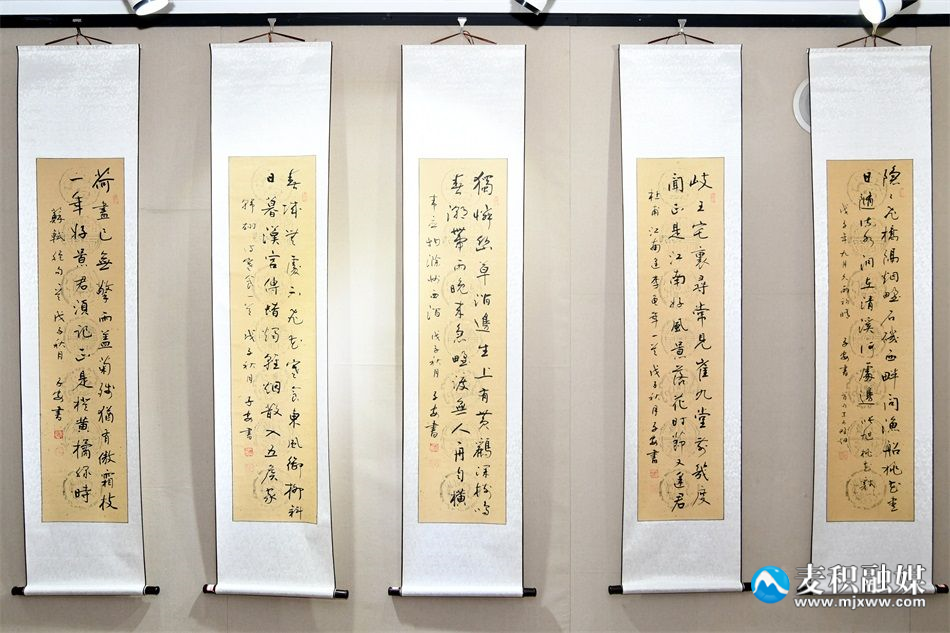 荷盡已無擎雨蓋菊殘猶有傲霜枝
一年好景君須記正是橙黃橘綠時
蘇軾絕句一首 戊子秋月 子安書
春城無處不飛花寒食東風御柳斜
日暮漢宮傳蠟燭輕烟散入五侯家
韓翃詩寒食一首 戊子秋月 子安書
獨憐幽草澗邊生上有黃鸝深樹鳴
春潮帶雨晚來急野渡無人舟自橫
韋應物滁州西澗 戊子秋月 子安書
岐王宅裏尋常見崔九堂前幾度
聞正是江南好風景落花時節又逢君
杜甫江南逢李龜年一首 戊子秋月子安書
隱〻飛橋隔烟野石磯西畔問漁船桃花盡
日隨流水洞在清溪何處邊 張旭桃花
戊子年九月天雨初晴 子安書
麦积融媒
www.mjxww.com